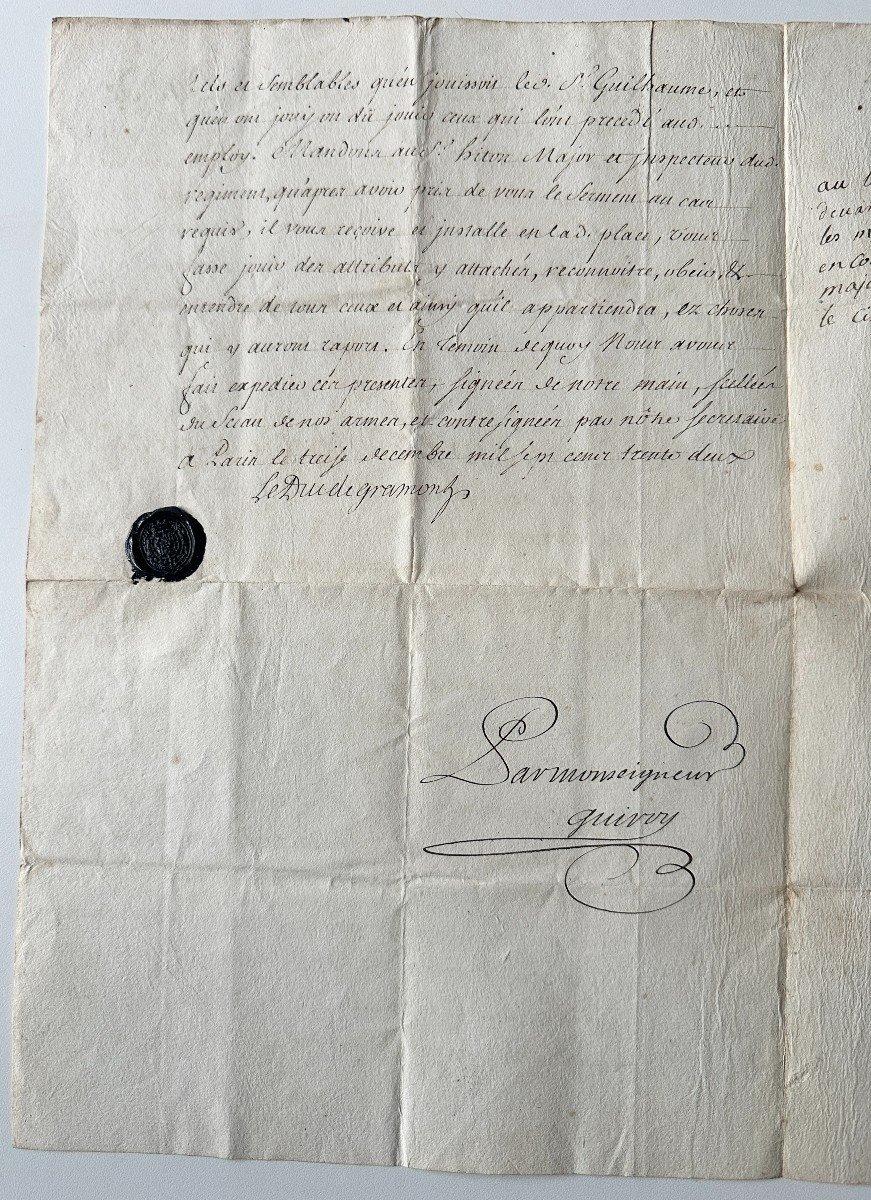 tels et semblables qu'en jouissoit led. Sr. Guilhaume, et
qu'en ont jouy ou dû jouir ceux qui l'ont precedé aud.
employ. Mandons au Sr. hiton Major et jnspecteur dud.
regiment, qu'apres avoir pris de vous le Serment au cas
requis, il vous reçoive et jnstalle en lad. place, vous
fasse jouir des attributs y attachés, reconnoitre, obeir, &
entendre de tous ceux et ainsy qu'il appartiendra, ez choses
qui y auront raport. En temoin de quoy Nous avons
fait expedier ces presentes, signées de notre main, scellées
du Sceau de nos armes, et contresignées par nôtre secretaire
a Paris le treise decembre mil sept cens trente deux
Le Duc de gramont
Par monseigneur
quiroy
au
devan
les m
en co
majo
le ci